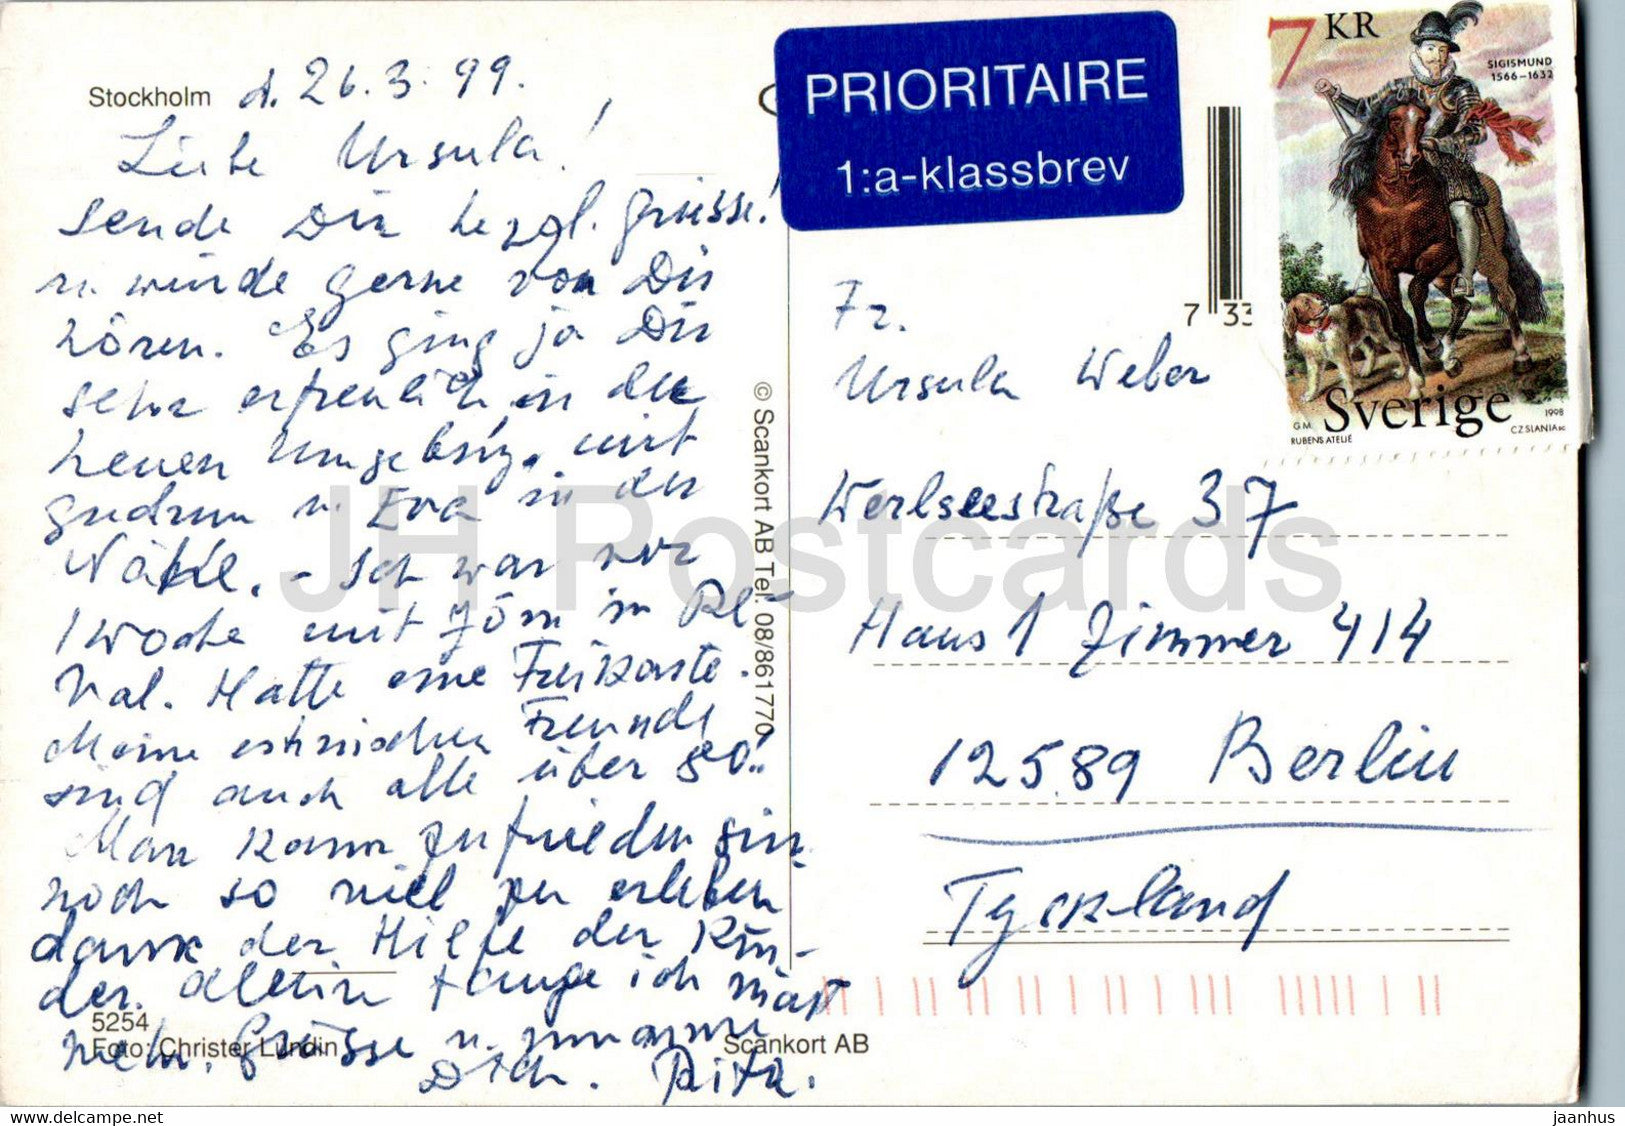 Stockholm d. 26.3.99.
Liebe Ursula!
sende Dir herzgl. Grüsse!
u. würde gerne von Dir
hören. Es ging ja Dir
sehr erfreulich in der
neuen Umgebung, mit
Gudrun u. Eva in der
Nähe. - Ich war vor
1 Woche mit Jörn in Re-
val. Hatte eine Freikarte.
Meine estnischen Freunde
sind auch alle über 80!
Man kann zufrieden sein
noch so viel zu erleben
dank der Hilfe der Kin-
der. Allein tauge ich nicht
mehr. Grüsse u. umarme
Dich. Rita.
5254
Foto: Christer Lundin
Scankort AB
© Scankort AB Tel. 08/861770
PRIORITAIRE
1:a-klassbrev
7 33
7 KR
SIGISMUND
1566–1632
Sverige
1998
G.M.
RUBENS ATELIÉ
CZ SLANIA sc
Fr.
Ursula Weber
Werlseestraße 37
Haus 1 Zimmer 414
12589 Berlin
Tyskland
JH Postcards
www.delcampe.net
jaanhus